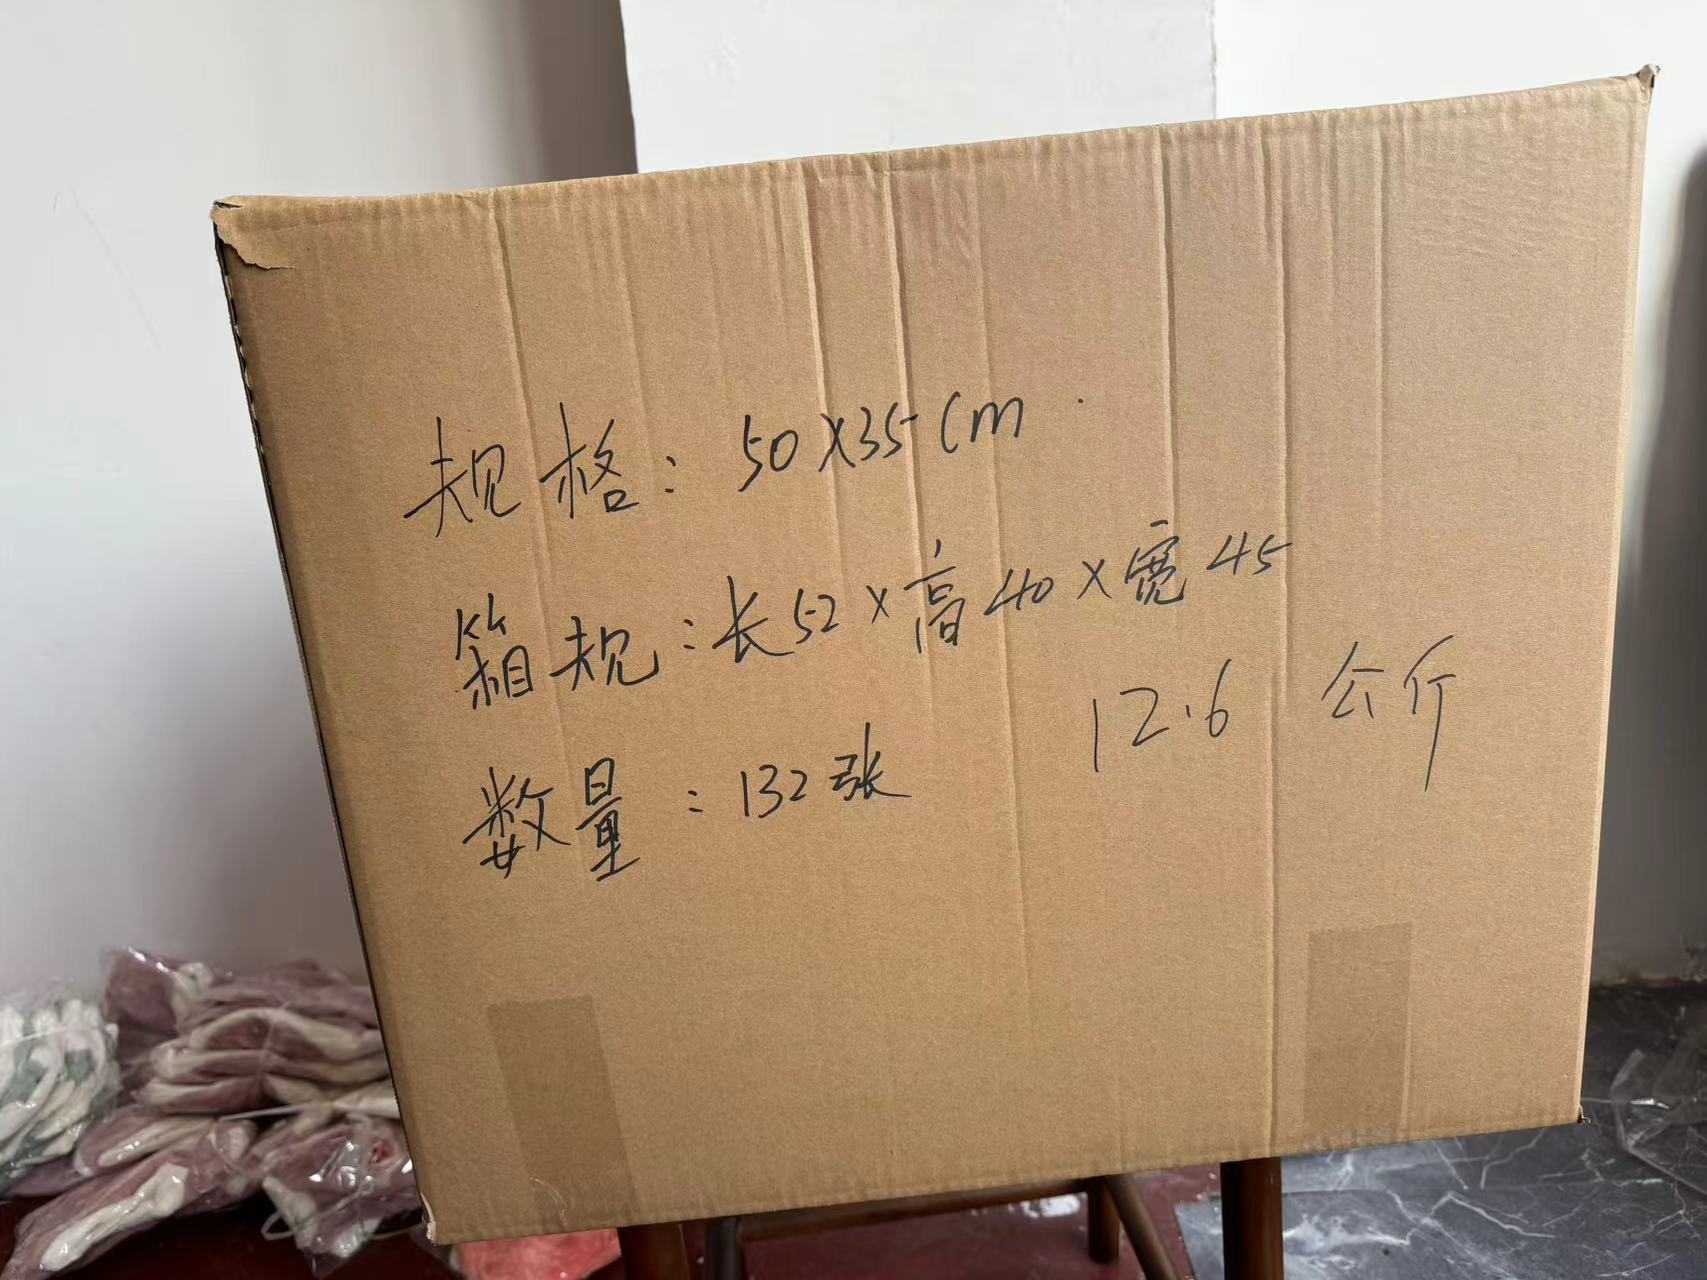 规格：50X35cm
箱规：长52X高40X宽45
12.6 公斤
数量：132张